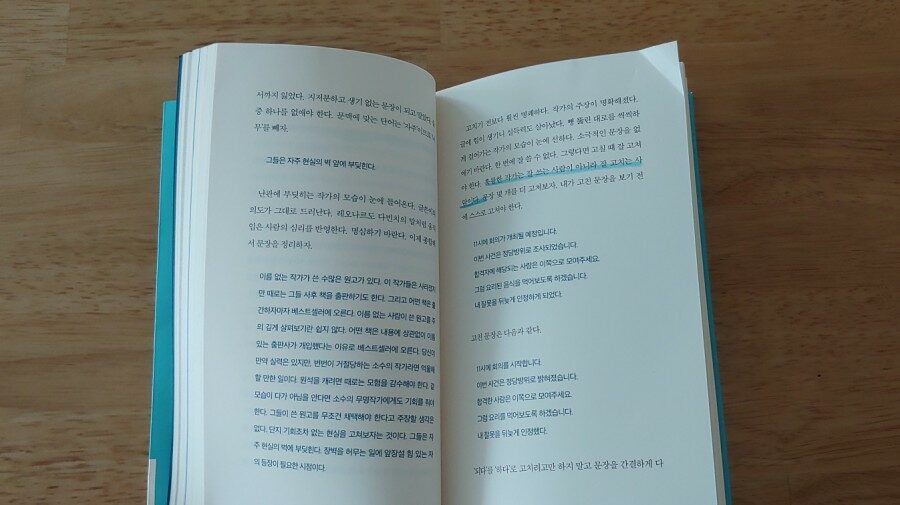 서까지 잃었다. 지저분하고 생기 없는 문장이 되고 말았다. 둘
중 하나를 없애야 한다. 문맥에 맞는 단어는 '자주'이므로 '너
무'를 빼자.
그들은 자주 현실의 벽 앞에 부딪힌다.
난관에 부딪히는 작가의 모습이 눈에 들어온다. 글쓴이의
의도가 그대로 드러난다. 레오나르도 다빈치의 말처럼 움직
임은 사람의 심리를 반영한다. 명심하기 바란다. 이제 종합해
서 문장을 정리하자.
이름 없는 작가가 쓴 수많은 원고가 있다. 이 작가들은 사라졌지
만 때로는 그들 사후 책을 출판하기도 한다. 그리고 어떤 책은 출
간하자마자 베스트셀러에 오른다. 이름 없는 사람이 쓴 원고를 주
의 깊게 살펴보기란 쉽지 않다. 어떤 책은 내용에 상관없이 이름
있는 출판사가 개입했다는 이유로 베스트셀러에 오른다. 당신이
만약 실력은 있지만, 번번이 거절당하는 소수의 작가라면 억울해
할 만한 일이다. 원석을 캐려면 때로는 모험을 감수해야 한다. 겉
모습이 다가 아님을 안다면 소수의 무명작가에게도 기회를 줘야
한다. 그들이 쓴 원고를 무조건 채택해야 한다고 주장할 생각은
없다. 단지 기회조차 없는 현실을 고쳐보자는 것이다. 그들은 자
주 현실의 벽에 부딪힌다. 장벽을 허무는 일에 앞장설 힘 있는 자
의 등장이 필요한 시점이다.
고치기 전보다 훨씬 명쾌하다. 작가의 주장이 명확해졌다.
글에 힘이 생기니 설득력도 살아났다. 뻥 뚫린 대로를 씩씩하
게 걸어가는 작가의 모습이 눈에 선하다. 소극적인 문장을 없
애기 바란다. 한 번에 잘 쓸 수 없다. 그렇다면 고칠 때 잘 고쳐
야 한다. 훌륭한 작가는 잘 쓰는 사람이 아니라 잘 고치는 사
람이다. 문장 몇 개를 더 고쳐보자. 내가 고친 문장을 보기 전
에 스스로 고쳐야 한다.
11시에 회의가 개최될 예정입니다.
이번 사건은 정당방위로 조사되었습니다.
합격자에 해당되는 사람은 이쪽으로 모여주세요.
그럼 요리된 음식을 먹어보도록 하겠습니다.
내 잘못을 뒤늦게 인정하게 되었다.
고친 문장은 다음과 같다.
11시에 회의를 시작합니다.
이번 사건은 정당방위로 밝혀졌습니다.
합격한 사람은 이쪽으로 모여주세요.
그럼 요리를 먹어보도록 하겠습니다.
내 잘못을 뒤늦게 인정했다.
'되다'를 '하다'로 고치려고만 하지 말고 문장을 간결하게 다